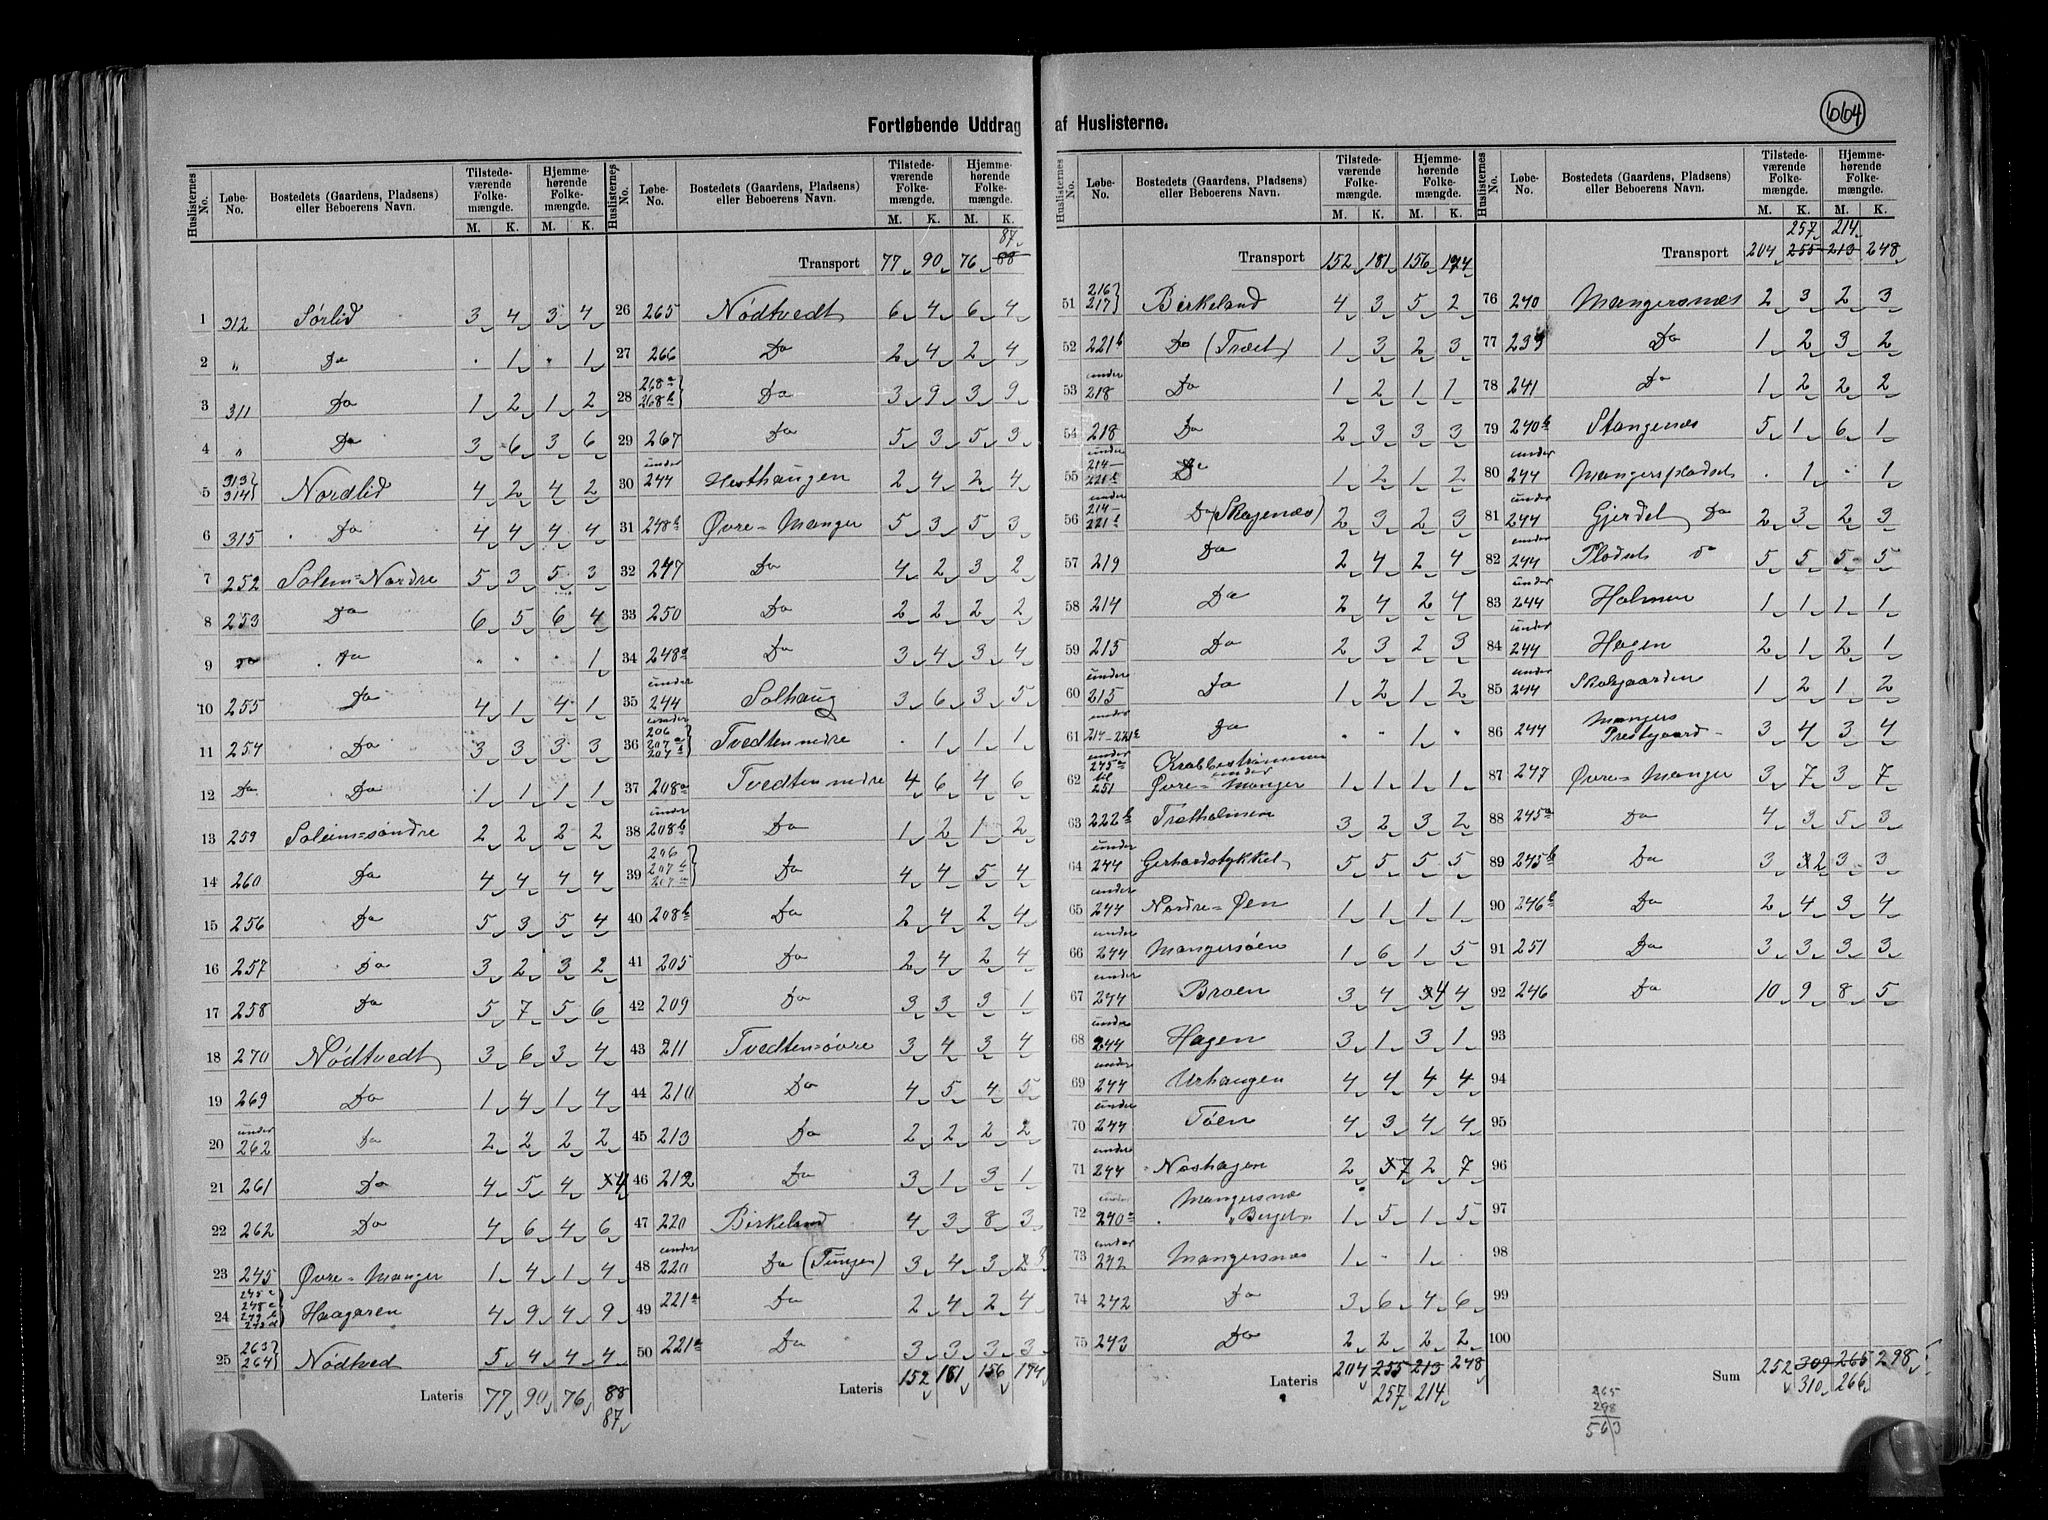 664
Fortløbende Uddrag af Huslisterne.
Huslisternes No. Løbe-No. Bostedets (Gaardens, Pladsens) eller Beboerens Navn. Tilstedeværende Folkemængde. M. K. Hjemmehørende Folkemængde. M. K.
1 312 Sørlid 3 4 3 4
2 " Do . 1 . 1
3 311 Do 1 2 1 2
4 " Do 3 6 3 6
5 313 314 Nordlid 4 2 4 2
6 315 Do 4 4 4 4
7 252 Solem=Nordre 5 3 5 3
8 253 Do 6 5 6 4
9 do do . . . 1
10 255 Do 4 1 4 1
11 254 Do 3 3 3 3
12 Do Do 1 1 1 1
13 259 Soleim=søndre 2 2 2 2
14 260 Do 4 4 4 4
15 256 Do 5 3 5 4
16 257 Do 3 2 3 2
17 258 Do 5 7 5 6
18 270 Nödtvedt 3 6 3 4
19 269 Do 1 4 1 4
20 under 262 Do 2 2 2 2
21 261 Do 4 5 4 4
22 262 Do 4 6 4 6
23 245 Øvre=Manger 1 4 1 4
24 Haagaren 4 9 4 9
25 263 264 Nödtved 5 4 4 4
Lateris 77 90 76 88
87
Huslisternes No. Løbe-No. Bostedets (Gaardens, Pladsens) eller Beboerens Navn. Tilstedeværende Folkemængde. M. K. Hjemmehørende Folkemængde. M. K.
87
Transport 77 90 76 88
26 265 Nödtvedt 6 4 6 4
27 266 Do 2 4 2 4
28 268a 268b Do 3 9 3 9
29 267 Do 5 3 5 3
30 under 244 Hesthaugen 2 4 2 4
31 248b Øvre=Manger 5 3 5 3
32 247 Do 4 2 3 2
33 250 Do 2 2 2 2
34 248a Do 3 4 3 4
35 under 244 Solhaug 3 6 3 5
36 under 206 207a 207b Tvedten nedre . 1 1 1
37 208a Tvedten nedre 4 6 4 6
38 under 208b Do 1 2 1 2
39 206 207b 207a Do 4 4 5 4
40 208b Do 2 4 2 4
41 205 Do 2 4 2 4
42 209 Do 3 3 3 1
43 211 Tvedten=øvre 3 4 3 4
44 210 Do 4 5 4 5
45 213 Do 2 2 2 2
46 212 Do 3 1 3 1
47 220 Birkeland 4 3 8 3
48 under 220 Do 3 4 3 3
49 221a Do 2 4 2 4
50 221a Do 3 3 3 3
Lateris 152 181 156 174
Huslisternes No. Løbe-No. Bostedets (Gaardens, Pladsens) eller Beboerens Navn. Tilstedeværende Folkemængde. M. K. Hjemmehørende Folkemængde. M. K.
Transport 152 181 156 174
51 216 217 Birkeland 4 3 5 2
52 221b Do (Træet) 1 3 2 3
53 under 218 Do 1 2 1 1
54 218 Do 2 3 3 3
55 under 214-221b Do 1 2 1 2
56 under 214-221b Do (Skagenæs) 2 3 2 3
57 219 Do 2 4 2 4
58 214 Do 2 4 2 4
59 215 Do 2 3 2 3
60 under 215 Do 1 2 1 2
61 under 214-221b Do . . 1 .
62 under 245a til 251 Krabbestrømmen under Øvre=Manger 1 1 1 1
63 222b Trætholmen 3 2 3 2
64 under 244 Gerhardstykket 5 5 5 5
65 under 244 Nordre=Øen 1 1 1 1
66 under 244 Mangersøen 1 6 1 5
67 under 244 Broen 3 4 4 4
68 under 244 Hagen 3 1 3 1
69 under 244 Urhaugen 4 4 4 4
70 under 244 Tøen 4 3 4 4
71 under 244 Nøshagen 2 7 2 7
72 under 240a Mangersnæs Berget 1 5 1 5
73 under 242 Mangersnæs 1 . 1 .
74 242 Do 3 6 4 6
75 243 Do 2 2 2 2
Lateris 204 255 213 248
257 214
Huslisternes No. Løbe-No. Bostedets (Gaardens, Pladsens) eller Beboerens Navn. Tilstedeværende Folkemængde. M. K. Hjemmehørende Folkemængde. M. K.
257 214
Transport 204 255 213 248
76 240 Mangersnæs 2 3 2 3
77 239 Do 1 2 3 2
78 241 Do 1 2 2 2
79 240b Stangenæs 5 1 6 1
80 under 244 Mangerspladset . 1 . 1
81 under 244 Gjerdet Do 2 3 2 3
82 under 244 Pladset do 5 5 5 5
83 under 244 Holmen 1 1 1 1
84 under 244 Hagen 2 1 2 1
85 under 244 Skolgaarden 1 2 1 2
86 244 Mangers Prestgaard 3 4 3 4
87 247 Øvre=Manger 3 7 3 7
88 245a Do 4 3 5 3
89 245b Do 3 2 3 3
90 246b Do 2 4 3 4
91 251 Do 3 3 3 3
92 246 Do 10 9 8 5
93
94
95
96
97
98
99
100
Sum 252 309 265 298
310 266
265
298
563